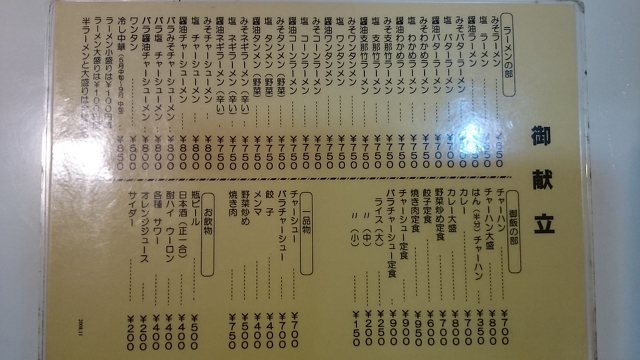 御献立
ラーメンの部
みそラーメン ¥650
塩 ラーメン ¥650
醤油ラーメン ¥650
みそバターラーメン ¥700
塩 バターラーメン ¥700
醤油バターラーメン ¥700
みそわかめラーメン ¥700
塩 わかめラーメン ¥700
醤油わかめラーメン ¥700
みそ支那竹ラーメン ¥750
塩 支那竹ラーメン ¥750
醤油支那竹ラーメン ¥750
みそワンタンメン ¥750
塩 ワンタンメン ¥750
醤油ワンタンメン ¥750
みそコーンラーメン ¥750
塩 コーンラーメン ¥750
醤油コーンラーメン ¥750
みそタンメン(野菜) ¥750
塩 タンメン(野菜) ¥750
醤油タンメン(野菜) ¥750
みそネギラーメン(辛い) ¥750
塩 ネギラーメン(辛い) ¥750
醤油ネギラーメン(辛い) ¥750
みそチャーシューメン ¥800
塩 チャーシューメン ¥800
醤油チャーシューメン ¥800
バラみそチャーシューメン ¥800
バラ塩 チャーシューメン ¥800
バラ醤油チャーシューメン ¥800
ワンタン ¥500
冷し中華(5月中旬~9月中旬) ¥850
ラーメン小盛りは¥100
ラーメン大盛りは¥100
半ラーメンと大盛りは
御飯の部
チャーハン ¥700
チャーハン大盛 ¥800
はん(半分)チャーハン ¥350
カレー ¥700
カレー大盛 ¥800
野菜炒め定食 ¥700
餃子定食 ¥600
焼き肉定食 ¥950
チャーシュー定食 ¥900
バラチャーシュー定食 ¥900
ライス(大) ¥250
〃(中) ¥200
〃(小) ¥150
一品物
チャーシュー ¥700
バラチャーシュー ¥700
餃子 ¥400
メンマ ¥400
野菜炒め ¥500
焼き肉 ¥750
お飲物
瓶ビール ¥500
日本酒(正一合) ¥400
酎ハイ ウーロン ¥400
各種 サワー ¥400
オレンジジュース ¥200
サイダー ¥200
2008.11